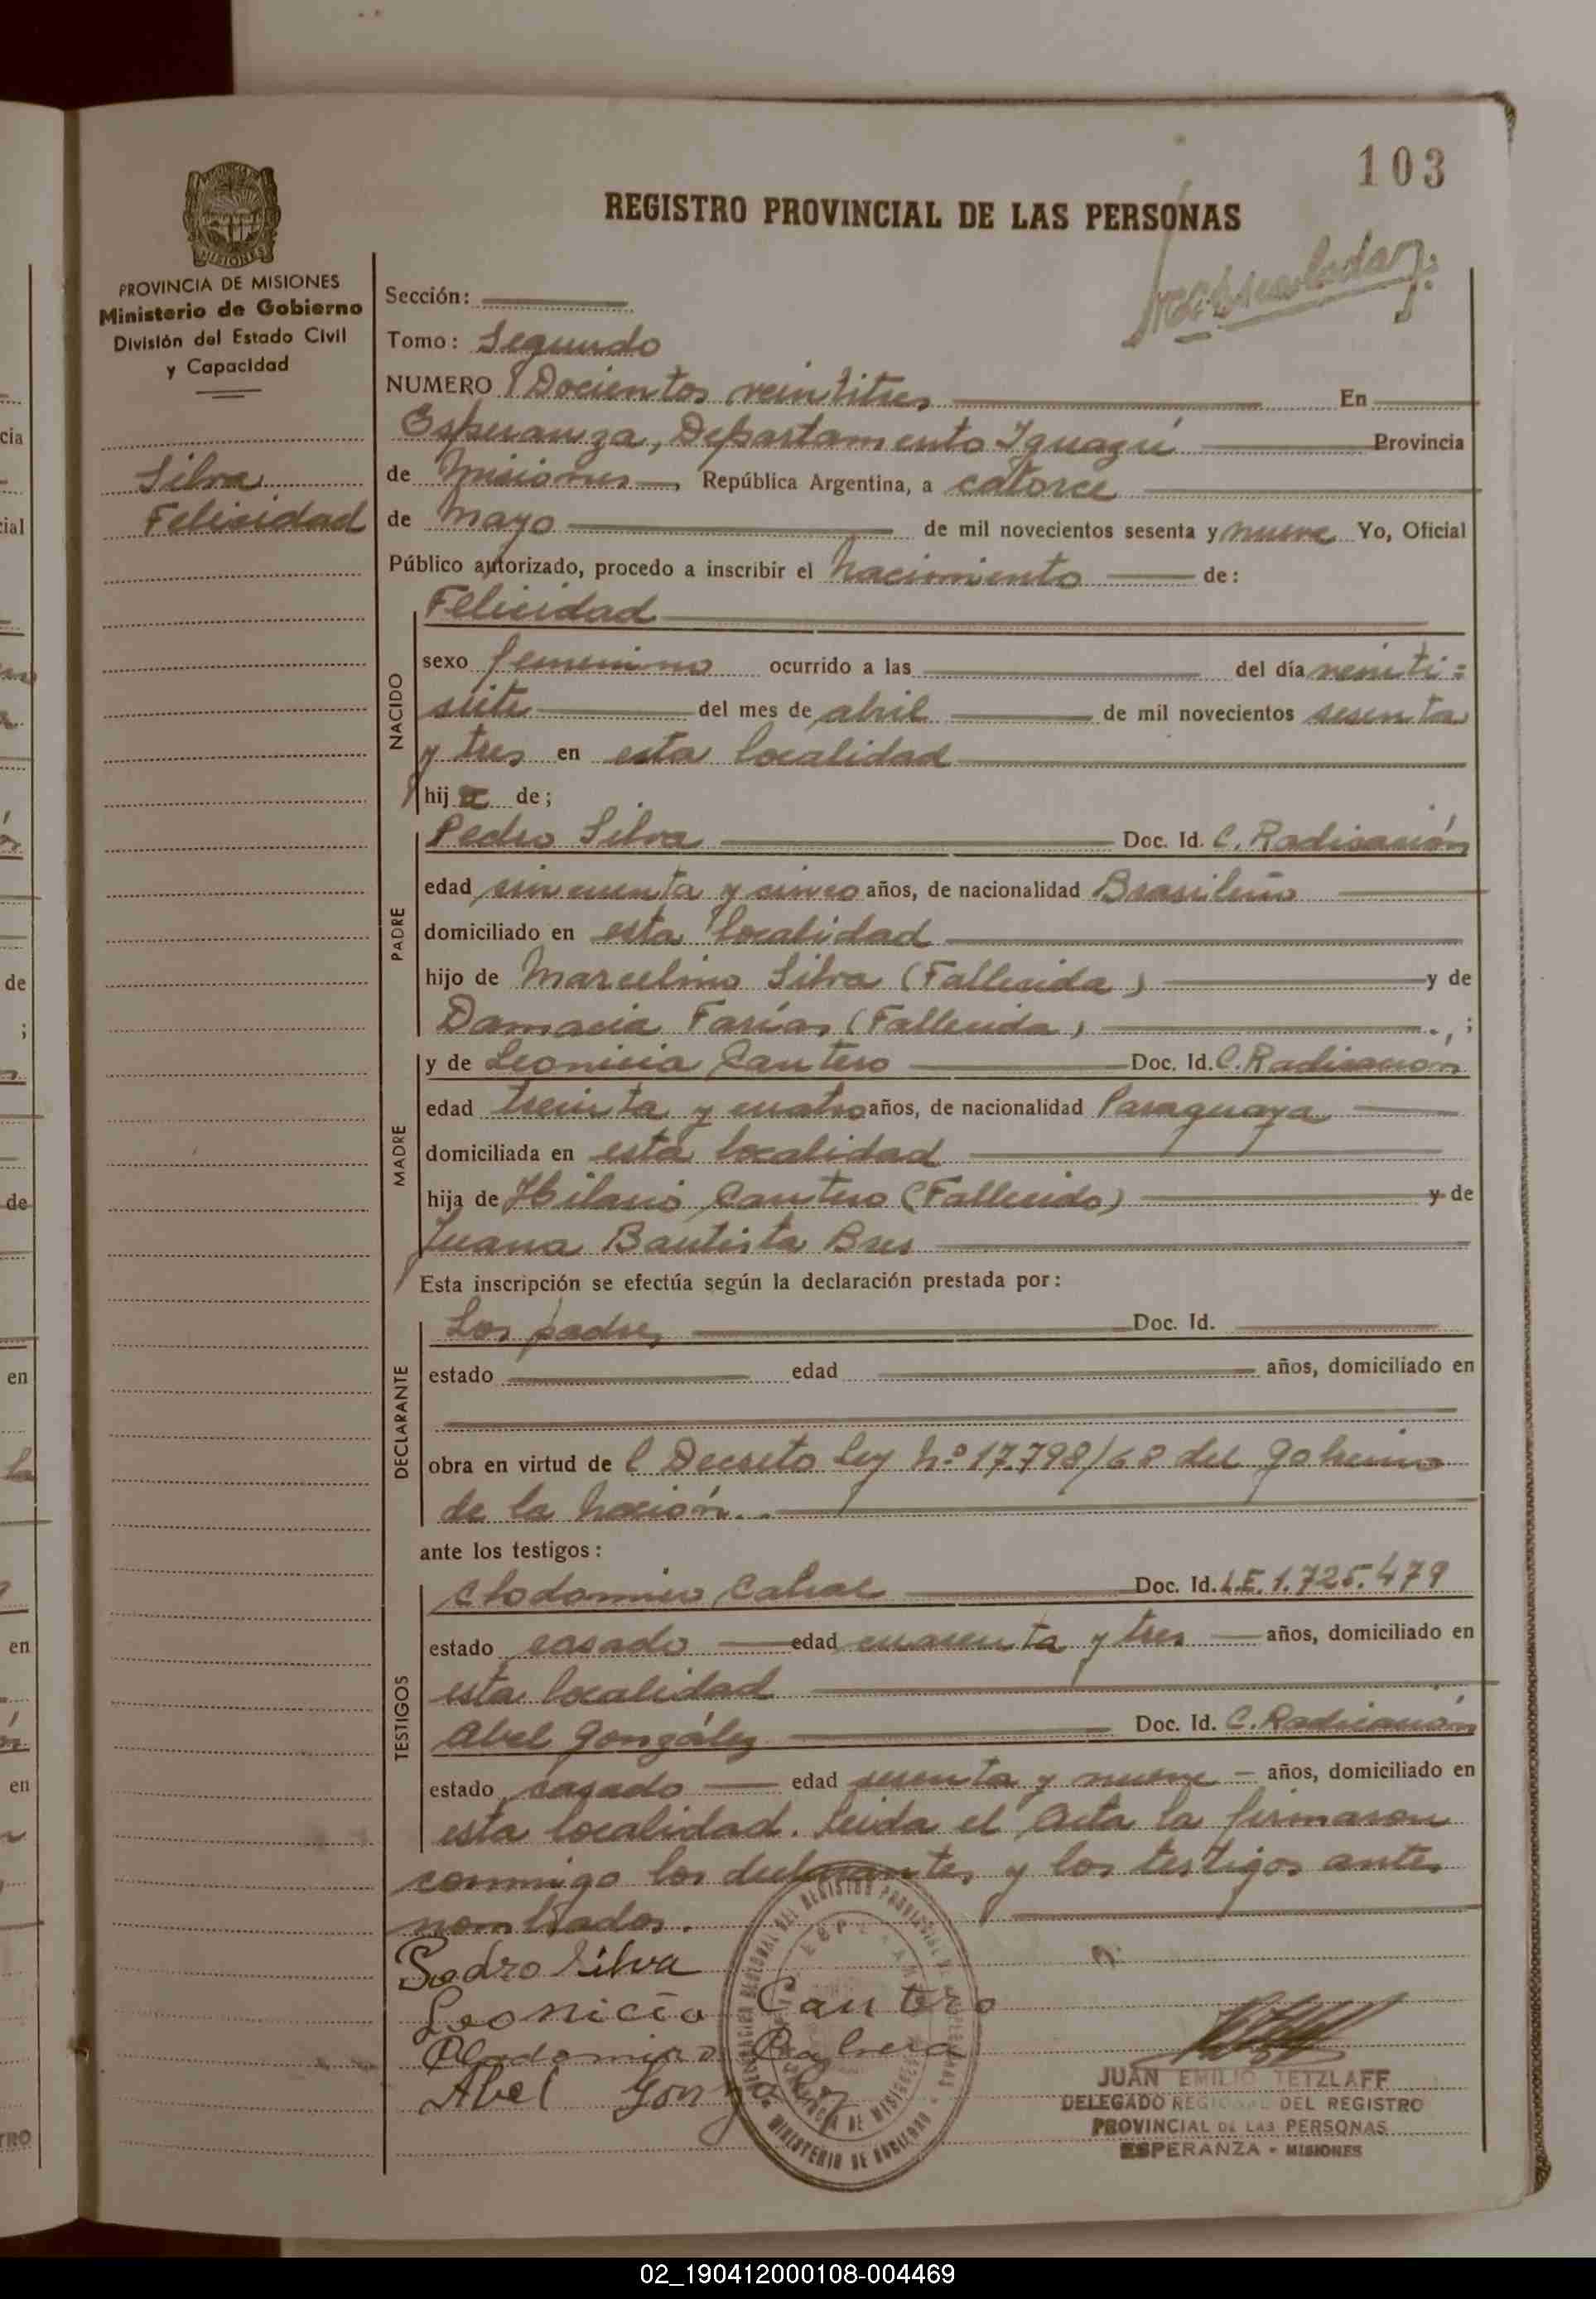 103
REGISTRO PROVINCIAL DE LAS PERSONAS
PROVINCIA DE MISIONES
Ministerio de Gobierno
División del Estado Civil
y Capacidad
Silva
Felicidad
Sección:
Tomo: Segundo
NUMERO Docientos veintitres En
Esperanza, Departamento Iguazú Provincia
de Misiones, República Argentina, a catorce
de Mayo de mil novecientos sesenta y nueve Yo, Oficial
Público autorizado, procedo a inscribir el nacimiento de:
Felicidad
NACIDO
sexo femenino ocurrido a las del día veinti=
siete del mes de abril de mil novecientos sesenta
y tres en esta localidad
hija de;
PADRE
Pedro Silva Doc. Id. C. Radicación
edad cincuenta y cinco años, de nacionalidad Brasileño
domiciliado en esta localidad
hijo de Marcelino Silva (Fallecida) y de
Damacia Farías (Fallecida).;
MADRE
y de Leonicia Cantero Doc. Id. C. Radicación
edad treinta y cuatro años, de nacionalidad Paraguaya
domiciliada en esta localidad
hija de Hilario Cantero (Fallecido) y de
Juana Bautista Bres
Esta inscripción se efectúa según la declaración prestada por:
DECLARANTE
Los padres Doc. Id.
estado edad años, domiciliado en
obra en virtud de l Decreto Ley Nº 17.798/68 del gobierno
de la Nación..
ante los testigos:
TESTIGOS
Clodomiro Cabral Doc. Id. L.E. 1.725.479
estado casado edad cuarenta y tres años, domiciliado en
esta localidad
Abel González Doc. Id. C. Radicación
estado casado edad sesenta y nueve años, domiciliado en
esta localidad. Leida el Acta la firmaron
conmigo los declarantes y los testigos antes
nombrados.
Pedro Silva
Leonicia Cantero
Clodomiro Cabrera
Abel Gonzalez
JUAN EMILIO TETZLAFF
DELEGADO REGIONAL DEL REGISTRO
PROVINCIAL DE LAS PERSONAS
ESPERANZA - MISIONES
02_190412000108-004469